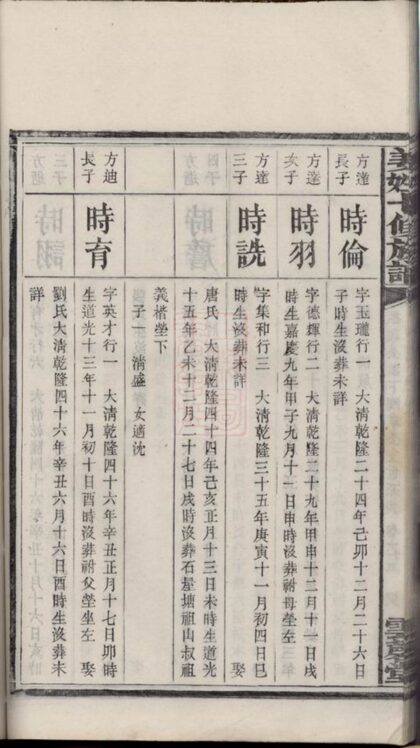 方達
長子
時倫
字玉瓏行一 大清乾隆二十四年己卯十二月二十六日
子時生沒葬未詳
方達
次子
時羽
字德輝行二 大清乾隆二十九年甲申十二月十一日戌
時生嘉慶九年甲子九月十一日申時沒葬祔母塋左
方達
三子
時詵
字集和行三 大清乾隆三十五年庚寅十一月初四日巳
時生沒葬未詳 娶
唐氏 大清乾隆四十四年己亥正月十三日未時生道光
十五年乙未十二月二十七日戌時沒葬石 塘祖山叔祖
義楷塋下
子一 清盛 女適沈
方迪
長子
時育
字英才行一 大清乾隆四十六年辛丑正月十七日卯時
生道光十三年十一月初十日酉時沒葬祔父塋坐左 娶
劉氏大清乾隆四十六年辛丑六月十六日酉時生沒葬未
詳